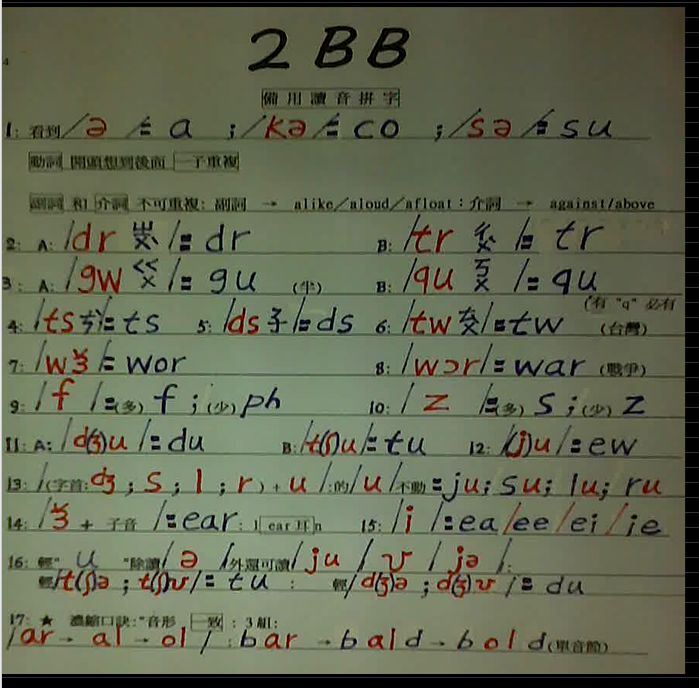 4
2 BB
備用讀音拼字
1: 看到/ə/= a ; /kə/= co ; /sə/= su
動詞 開頭想到後面 一子重複
副詞 和 介詞 不可重複: 副詞 → alike/aloud/afloat: 介詞 → against/above
2: A: /dr ㄓㄨ/= dr B: /tr ㄔㄨ/= tr
3: A: /gw ㄍㄨ/= gu (半) B: /qu ㄎㄨ/= qu
(有 "q" 必有
4: /ts ㄘ/= ts 5: /ds ㄗ/= ds 6: /tw ㄊㄨ/= tw (台灣)
7: /wɝ/= wor 8: /wɔr/= war (戰爭)
9: /f/=(多) f ; (少) ph 10: / z /=(多) s ; (少) z
11: A: /d(ʒ)u/= du B: /t(ʃ)u/= tu 12: /(j)u/= ew
13: /(字首: dʒ ; s ; l ; r) + u/:的/u/不動 = ju; su; lu; ru
14: /ɝ + 子音/= ear: l ear耳 n 15: /i/= ea/ee/ei/ie
16: 輕" u "除讀/ə/外還可讀/ju/ʊ/jə/:
輕/t(ʃ)ə ; t(ʃ)ʊ/= tu : 輕/d(ʒ)ə ; d(ʒ)ʊ/= du
17: ★ 濃縮口訣:"音形 一致 : 3組:
/ar → al → ol/ : bar → bald → bold (單音節)